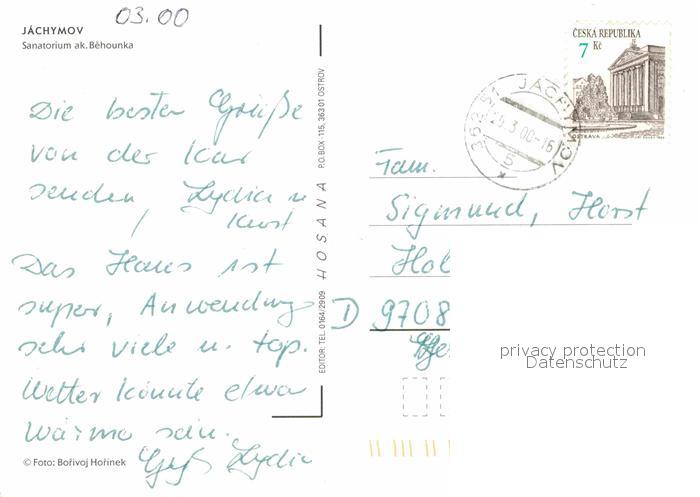 03.00
JÁCHYMOV
Sanatorium ak. Běhounka
Die besten Grüße
von der Kur
senden, Lydia u.
Kurst
Das Haus ist
super, Anwendung
sehr viele u. top.
Wetter könnte etwa
wärme sein.
Gruß Lydia
© Foto: Bořivoj Hořínek
EDITOR: TEL. 0164/2909 HOSANA P.O.BOX 115, 363 01 OSTROV
ČESKA REPUBLIKA
7 Kč
OSTRAVA
362 51 JÁCHYMOV
3.00-16
5
Fam.
Sigmund, Horst
Hol
D 9708
privacy protection
Datenschutz